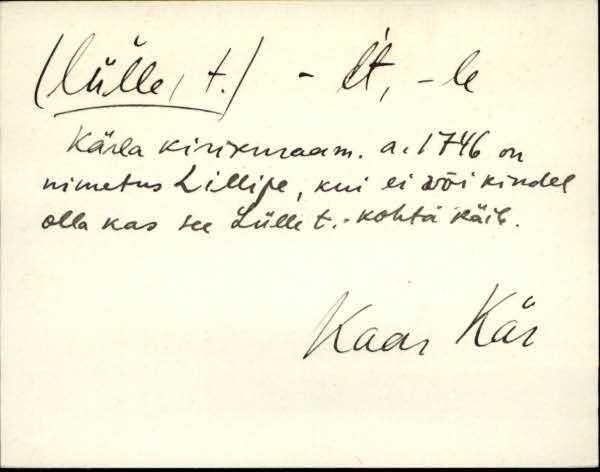 (Lülle, t.) - lt, -le
Kärla kirikuraam. a. 1746 on
nimetus Lillipe, kui ei või kindel
olla kas see Lülle t. kohta käib.
Kaar Kär